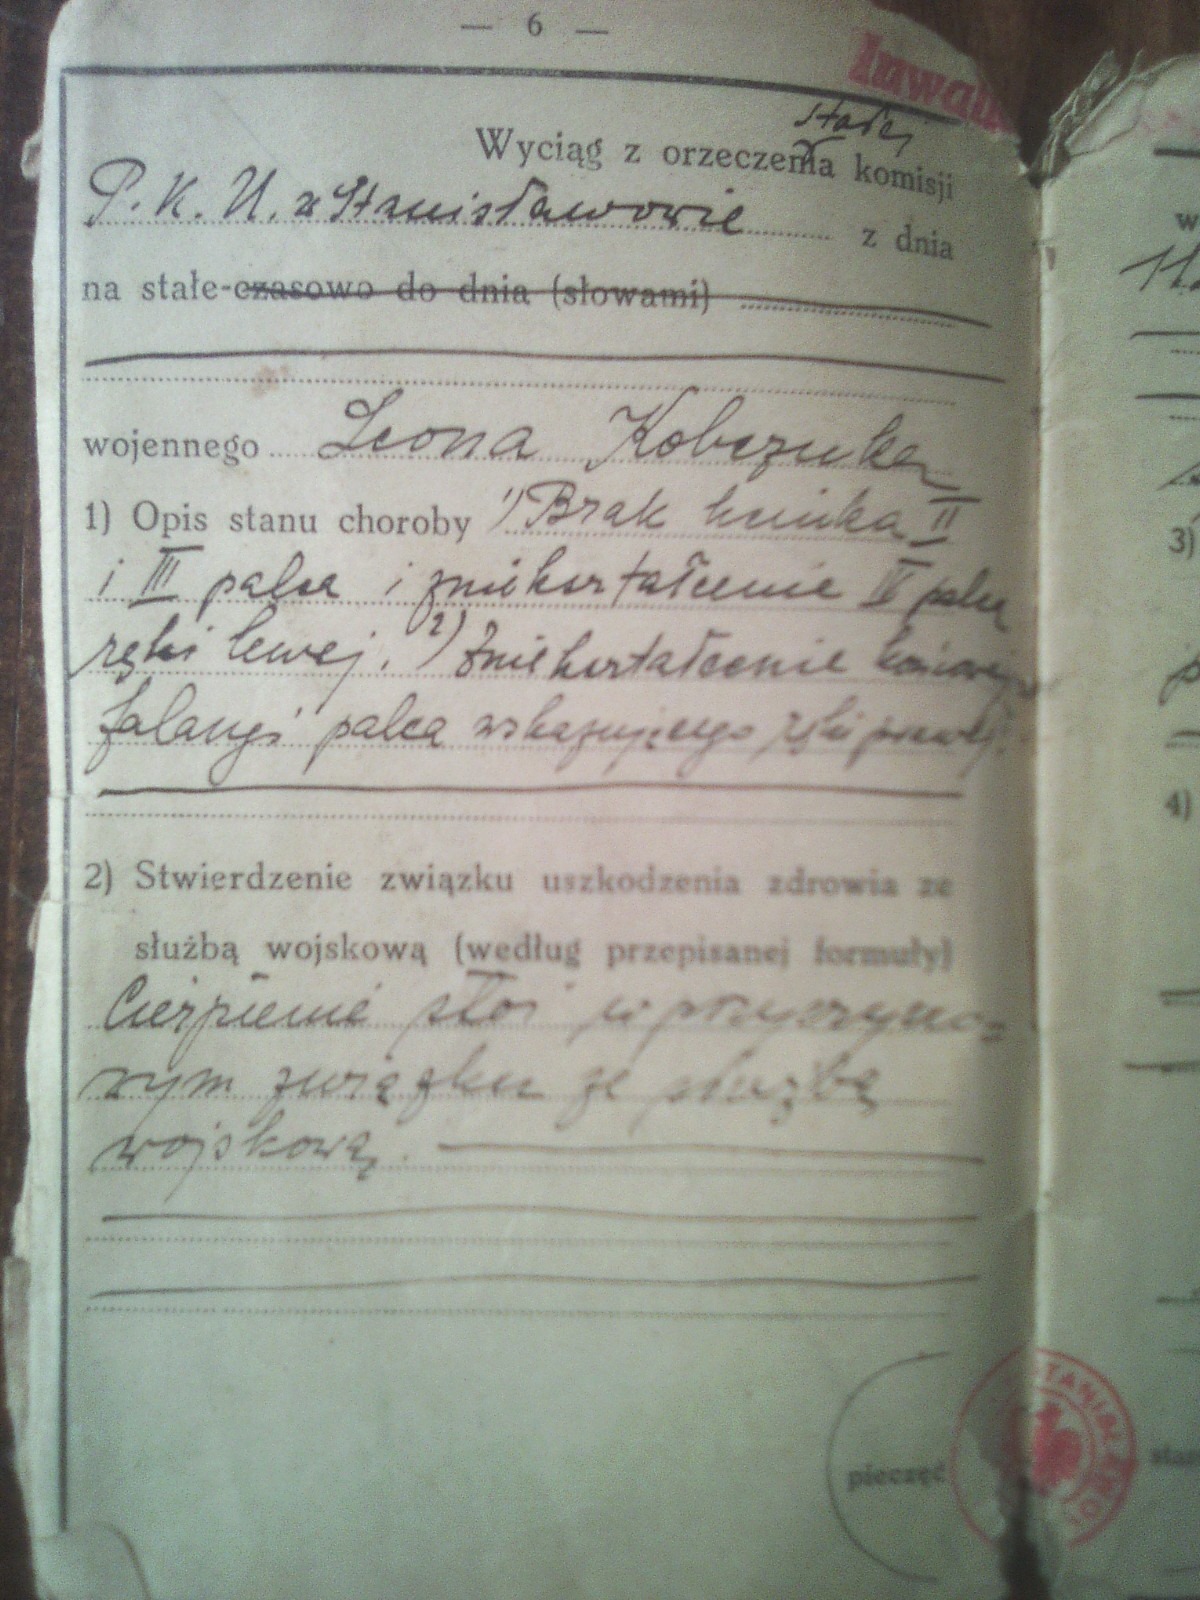 — 6 —
Inwali
stałej
Wyciąg z orzeczenia komisji
P. K. U. w Stanisławowie z dnia
na stałe-czasowo do dnia (słowami)
wojennego Leona Kobczuka
1) Opis stanu choroby 1) Brak II
i III palca i zniekształcenie IV palca
ręki lewej. 2) Zniekształcenie końcowej
falangi palca wskazującego ręki prawej.
2) Stwierdzenie związku uszkodzenia zdrowia ze
służbą wojskową (według przepisanej formuły)
Cierpienie stoi w przyczyno-
wym związku ze służbą
wojskową.
pieczęć
STANISŁAWO
w
3)
4)
star